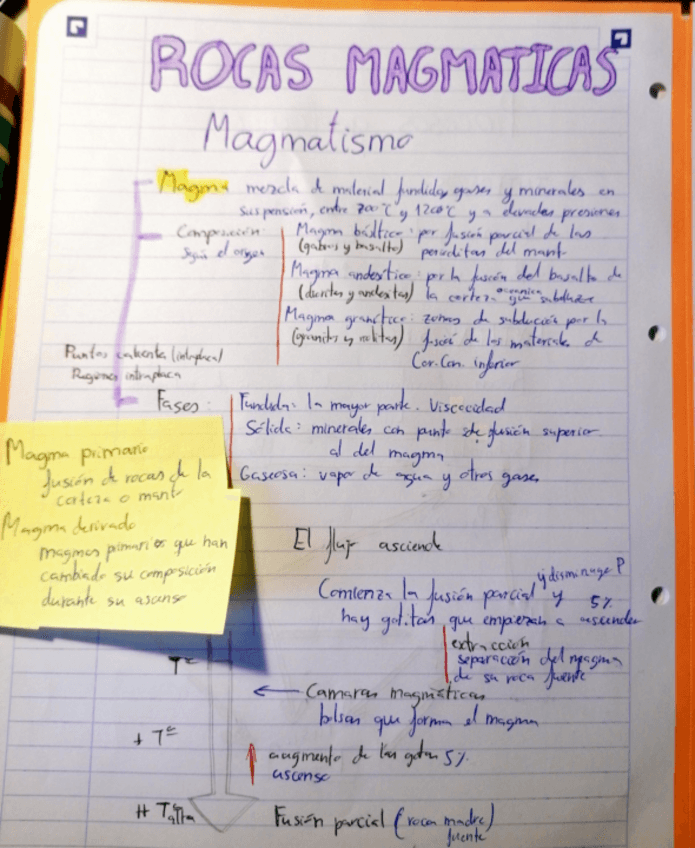 ROCAS MAGMATICAS
Magmatismo
Magma mezcla de material fundido, gases y minerales en
suspensión, entre 700°C y 1200°C y a elevadas presiones
Composición
según el origen
Magma báltico: por fusión parcial de las
(gabros y basalto) peridotitas del mant.
Magma andesítico: por la fusión del basalto de
(dioritas y andesitas) la corteza oceanica que subduce
Magma granítico: zonas de subdución por la
(granitos y riolitas) fusión de los materiales de
Cor. Con. inferior
Puntos caliente (intraplaca)
Regiones intraplaca
Fases:
Fundida: la mayor parte. Viscocidad
Sólida: minerales con punto de fusión superior
al del magma
Gaseosa: vapor de agua y otros gases
Magma primario
fusión de rocas de la
corteza o mant
Magma derivado
magmas primarios que han
cambiado su composición
durante su ascenso
El flujo asciende
Comienza la fusión parcial y disminuye P y 5%
hay gotitas que empiezan a ascender
extracción
separación del magma
de su roca fuente
Tª
← Camaras magmáticas
bolsas que forma el magma
+ Tª
augmento de las gotas 5%
ascenso
++ Tª alta
Fusión parcial (roca madre)
fuente